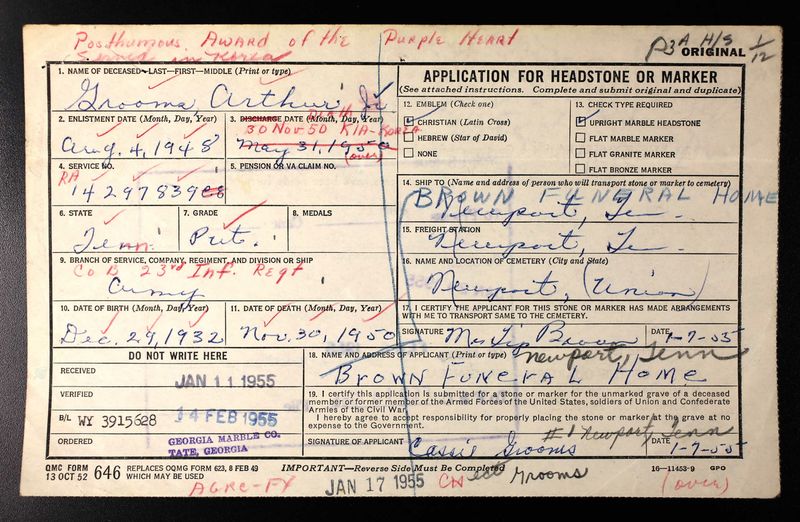 Posthumous Award of the Purple Heart
Served in Korea
P3A H/S 1/12
ORIGINAL
1. NAME OF DECEASED—LAST—FIRST—MIDDLE (Print or type)
Grooms, Arthur Jr
2. ENLISTMENT DATE (Month, Day, Year)
Aug. 4, 1948
3. DISCHARGE DATE (Month, Day, Year)
Death
30 Nov 50 KIA-KOREA
May 31, 1950
(over)
4. SERVICE NO.
RA
14297839
5. PENSION OR VA CLAIM NO.
6. STATE
Tenn.
7. GRADE
Pvt.
8. MEDALS
9. BRANCH OF SERVICE, COMPANY, REGIMENT, AND DIVISION OR SHIP
Co B 23rd Inf. Regt
Army
10. DATE OF BIRTH (Month, Day, Year)
Dec. 29, 1932
11. DATE OF DEATH (Month, Day, Year)
Nov. 30, 1950
APPLICATION FOR HEADSTONE OR MARKER
(See attached instructions. Complete and submit original and duplicate)
12. EMBLEM (Check one)
CHRISTIAN (Latin Cross)
HEBREW (Star of David)
NONE
13. CHECK TYPE REQUIRED
UPRIGHT MARBLE HEADSTONE
FLAT MARBLE MARKER
FLAT GRANITE MARKER
FLAT BRONZE MARKER
14. SHIP TO (Name and address of person who will transport stone or marker to cemetery)
BROWN FUNERAL HOME
Newport, Tn.
15. FREIGHT STATION
Newport, Tn.
16. NAME AND LOCATION OF CEMETERY (City and State)
Newport, (Union)
17. I CERTIFY THE APPLICANT FOR THIS STONE OR MARKER HAS MADE ARRANGEMENTS
WITH ME TO TRANSPORT SAME TO THE CEMETERY.
SIGNATURE
DATE
1-7-55
DO NOT WRITE HERE
RECEIVED
JAN 11 1955
VERIFIED
14 FEB 1955
B/L WY 3915628
ORDERED
GEORGIA MARBLE CO.
TATE, GEORGIA
18. NAME AND ADDRESS OF APPLICANT (Print or type)
Newport, Tenn
BROWN FUNERAL HOME
19. I certify this application is submitted for a stone or marker for the unmarked grave of a deceased
member or former member of the Armed Forces of the United States, soldiers of Union and Confederate
Armies of the Civil War.
I hereby agree to accept responsibility for properly placing the stone or marker at the grave at no
expense to the Government.
#1 Newport, Tenn
SIGNATURE OF APPLICANT
Cassie Grooms
DATE
1-7-55
QMC FORM 646
13 OCT 52
REPLACES QMC FORM 623, 8 FEB 49
WHICH MAY BE USED
IMPORTANT—Reverse Side Must Be Completed
16—11453-9 GPO
JAN 17 1955
Grooms
(over)